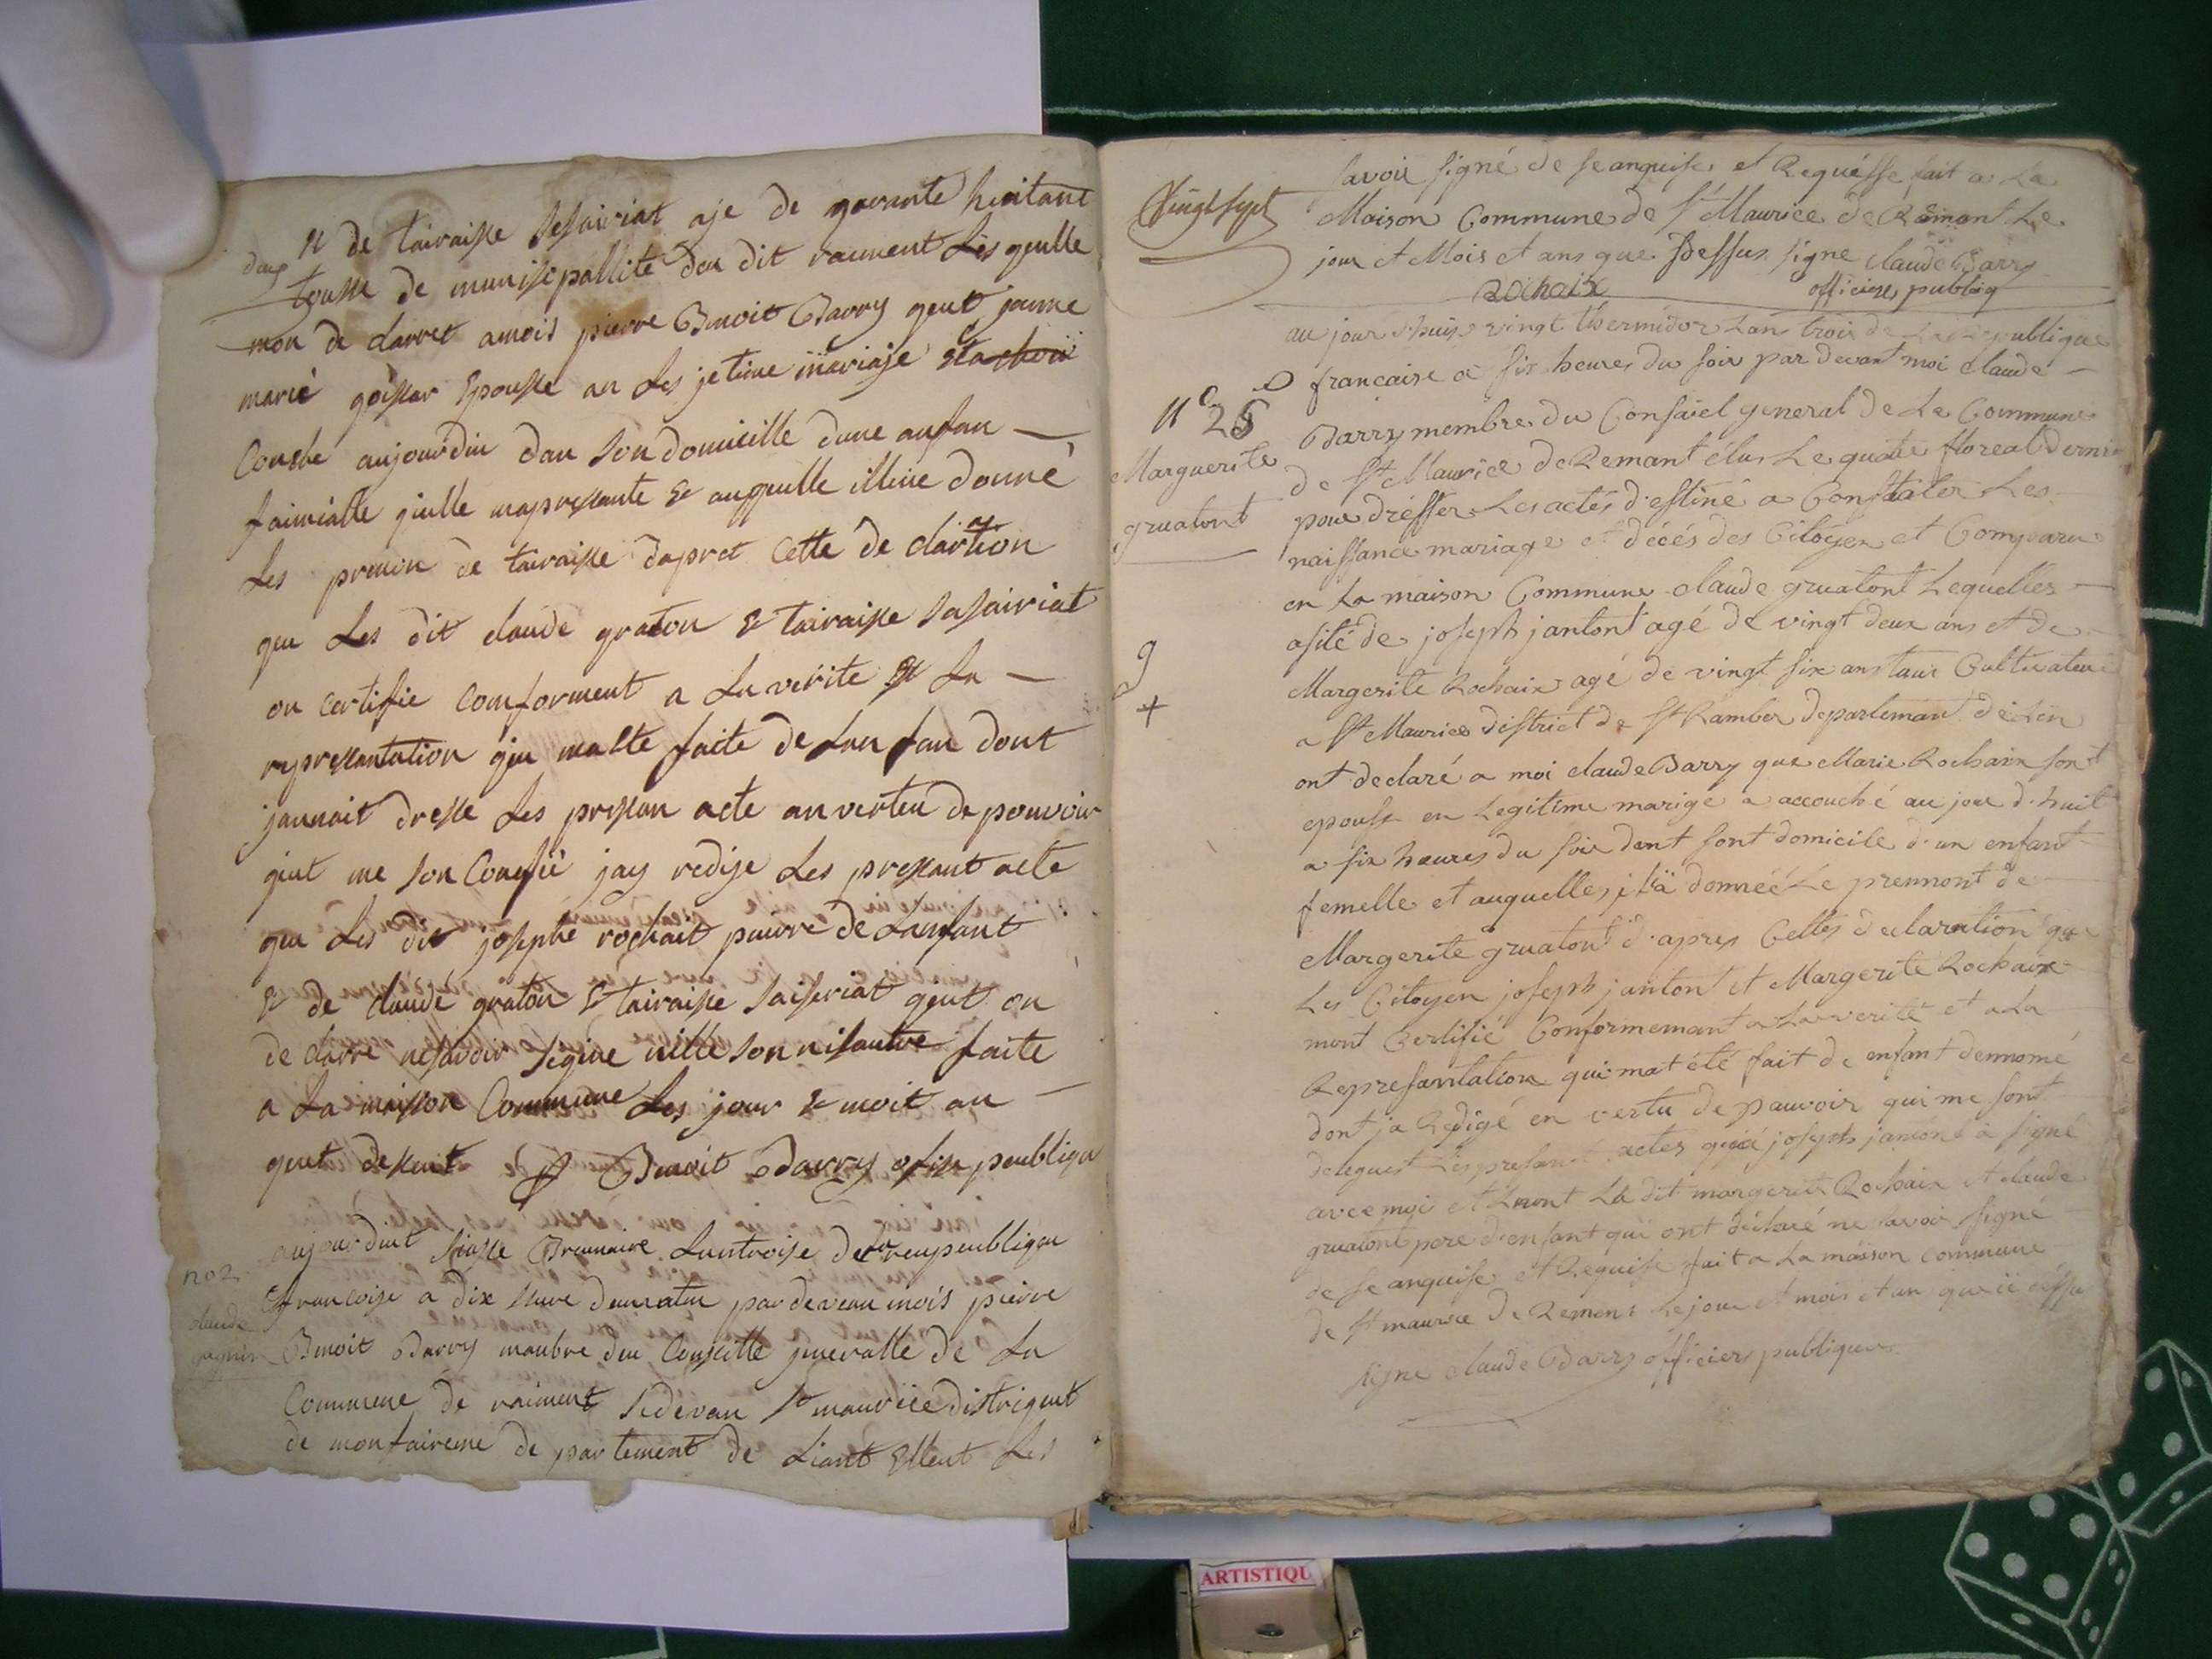 deux
& de tairaisse Sesairiat aje de garante huitant
tousse de munisipallité dou dit raument Les quelle
mon de clarret amois pierre Benoit Barry qeut janne
marié goissar Epousse an Les jetime mariaje
Couche aujourdui dan Son domicille dune anfan —
faimialle quelle mapressante & auquelle illiue donné
Les prenon de tairaisse dapret cette de claration
que Les dit claude graton & tairaisse Sasairiat
on certifie comforment a La verite & La —
repressantation qui matte faite de Lan fan dont
jannait dresse Les pressan acte an verteu de pouvoir
qiut me son Confié jay redije Les pressant acte
que Les dit josephe rochait paurre de Lanfant
& de claude graton & tairaisse Saiseriat qeut on
de clarre nesavoir Segine nille son nisautre faite
a La maison Commune Les jour & moit an —
quet dessut Benoit Barry ofise peublique
aujourduit Sinsse Brumaire Lantroise de La reupeublique
no 2
francoise a dix heure dumatin pardevan mois pierre
claude
Benoit Barry manbre deu Conseille jeneralle de La
Commune de raiment Sidevan St maurice distriqeut
de monfairme de partement de Liant Elleut Les
savoir signé de se anquise et Requésse fait a La
Vingt sept
Maison Commune de St Maurice de Rémant Le
jour et Mois et ans que Dessus signe claude Barry
Rochaix officiers publiq
au jour d'huis vingt thermidor Lan trois de La Republique
francaise a six heures du soir par devant moi claude —
No 26
Barry membre du Consaiel general de La Commune
Marguerite
de St Maurice de Remant élus Le quatre floreal dernier
gruatont
pour drésser Les actés d'estiné a Constater Les
naissance mariage et décés des Citoyen et Comparu
en La maison Commune claude gruatont Lequelles —
asité de joseph jantont agé de vingt deux ans et de
9
Margerite Rochaix agé de vingt six ans taus Cultivateur
+
a St Maurice district de St Ramber departemant de Lin
ont declaré a moi claude Barry que Marie Rochaix sont
epouse en Legitime marige a accouché au jour d'huit
a six heures du soir dant sont domicile d'un enfant
femelle et auquelles il a donneé Le prennont de
Margerite gruatont d'apres Celtes declaration que
Les Citoyen joseph jantont et Margerite Rochaix
mont Certifié Conformemant a La verite et a La
Represantation qui mat été fait de enfant dennomé
dont ja Redigé en vertu de pauvoir qui me sont
deleguest Les presant actes que joseph jantont a signé
avec moi et nont La dit margerite Rochaix et claude
gruatont pere d'enfant qui ont déclaré ne savoir signé
de se anquise et Requise fait a La maison commune
de St maurice de Remens Le jour et mois et an que ci dessu
signe claude Barry officiers publique
ARTISTIQU